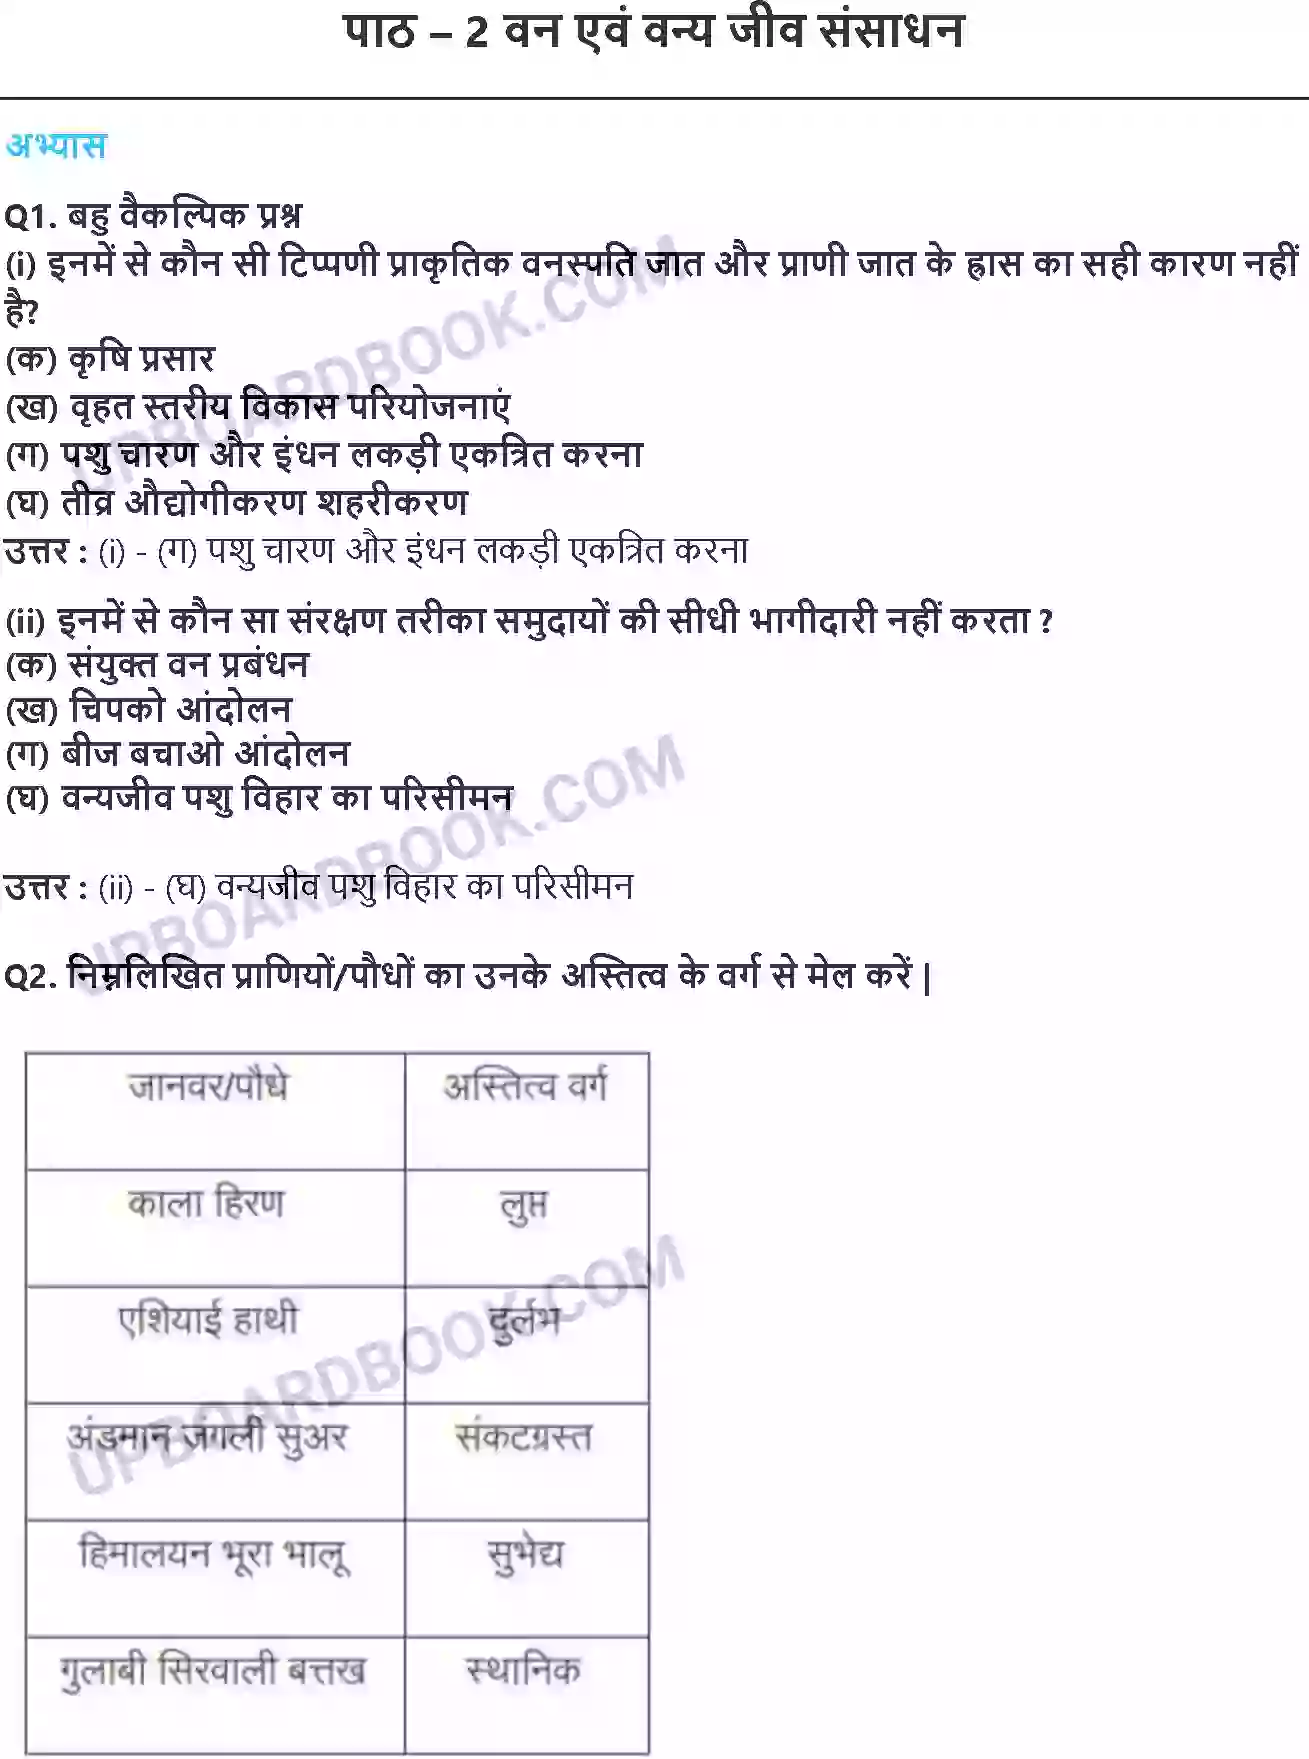 पाठ – 2 वन एवं वन्य जीव संसाधन
अभ्यास
Q1. बहु वैकल्पिक प्रश्न
(i) इनमें से कौन सी टिप्पणी प्राकृतिक वनस्पति जात और प्राणी जात के ह्रास का सही कारण नहीं
है?
(क) कृषि प्रसार
(ख) वृहत स्तरीय विकास परियोजनाएं
(ग) पशु चारण और इंधन लकड़ी एकत्रित करना
(घ) तीव्र औद्योगीकरण शहरीकरण
उत्तर : (i) - (ग) पशु चारण और इंधन लकड़ी एकत्रित करना
(ii) इनमें से कौन सा संरक्षण तरीका समुदायों की सीधी भागीदारी नहीं करता ?
(क) संयुक्त वन प्रबंधन
(ख) चिपको आंदोलन
(ग) बीज बचाओ आंदोलन
(घ) वन्यजीव पशु विहार का परिसीमन
उत्तर : (ii) - (घ) वन्यजीव पशु विहार का परिसीमन
Q2. निम्नलिखित प्राणियों/पौधों का उनके अस्तित्व के वर्ग से मेल करें |
जानवर/पौधे अस्तित्व वर्ग
काला हिरण लुप्त
एशियाई हाथी दुर्लभ
अंडमान जंगली सुअर संकटग्रस्त
हिमालयन भूरा भालू सुभेद्य
गुलाबी सिरवाली बत्तख स्थानिक
UPBOARDBOOK.COM
UPBOARDBOOK.COM
UPBOARDBOOK.COM